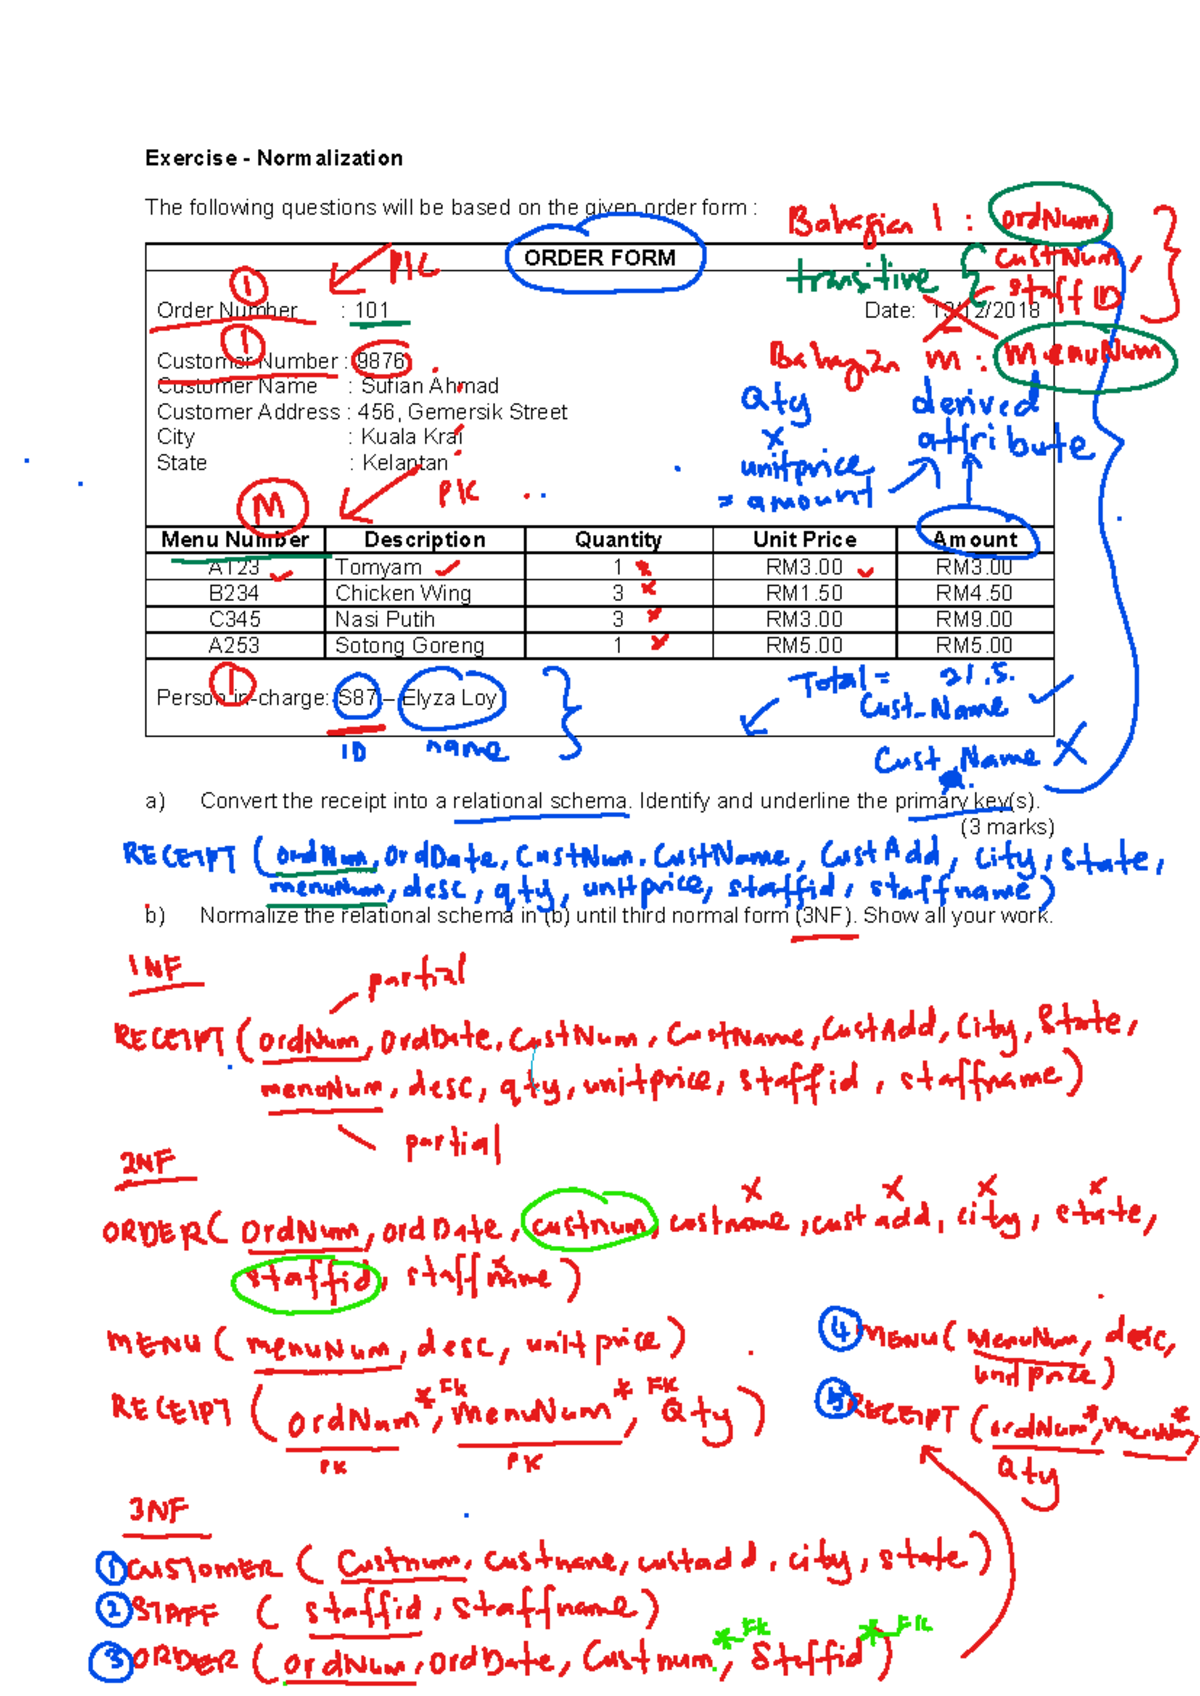 Exercise - Normalization
The following questions will be based on the given order form :
Bahagian 1 : ordNum,
custNum,
staff ID
transitive
ORDER FORM
PK
1
Order Number : 101
Date: 13/12/2018
1
Bahagian m : menuNum
Customer Number : 9876
Customer Name : Sufian Ahmad
Customer Address : 456, Gemersik Street
City : Kuala Krai
State : Kelantan
Qty
x
unitprice
= amount
derived
attribute
PK
M
Menu Number Description Quantity Unit Price Amount
A123 Tomyam 1 RM3.00 RM3.00
B234 Chicken Wing 3 RM1.50 RM4.50
C345 Nasi Putih 3 RM3.00 RM9.00
A253 Sotong Goreng 1 RM5.00 RM5.00
1
Person in-charge: S87 – Elyza Loy
ID name
Total = 21.5.
Cust_Name
Cust Name X
a) Convert the receipt into a relational schema. Identify and underline the primary key(s).
(3 marks)
RECEIPT (ordNum, OrdDate, CustNum, CustName, CustAdd, city, state,
menuNum, desc, qty, unitprice, staffid, staffname)
b) Normalize the relational schema in (b) until third normal form (3NF). Show all your work.
1NF
partial
RECEIPT (ordNum, OrdDate, CustNum, CustName, CustAdd, City, State,
menuNum, desc, qty, unitprice, staffid, staffname)
partial
2NF
x x x x
ORDER (OrdNum, ordDate, custnum, custname, cust add, city, state,
staffid, staffname)
x
MENU (menuNum, desc, unitprice)
RECEIPT (ordNum*, menuNum*, Qty)
FK FK
PK PK
4 MENU (MenuNum, desc,
unitprice)
5 RECEIPT (ordNum*, menuNum*,
Qty
3NF
1 CUSTOMER (Custnum, custname, custadd, city, state)
2 STAFF (staffid, staffname)
3 ORDER (ordNum, ordDate, Custnum*, Staffid*)
FK FK